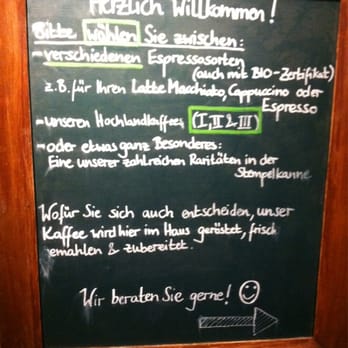 Herzlich Willkommen!
Bitte wählen Sie zwischen:
-verschiedenen Espressosorten
(auch mit BIO-Zertifikat)
z.B. für Ihren Latte Macchiato, Cappuccino oder
Espresso
-unseren Hochlandkaffees (I, II & III)
-oder etwas ganz Besonderes:
Eine unserer zahlreichen Raritäten in der
Stempelkanne
Wofür Sie sich auch entscheiden, unser
Kaffee wird hier im Haus geröstet, frisch
gemahlen & zubereitet.
Wir beraten Sie gerne!